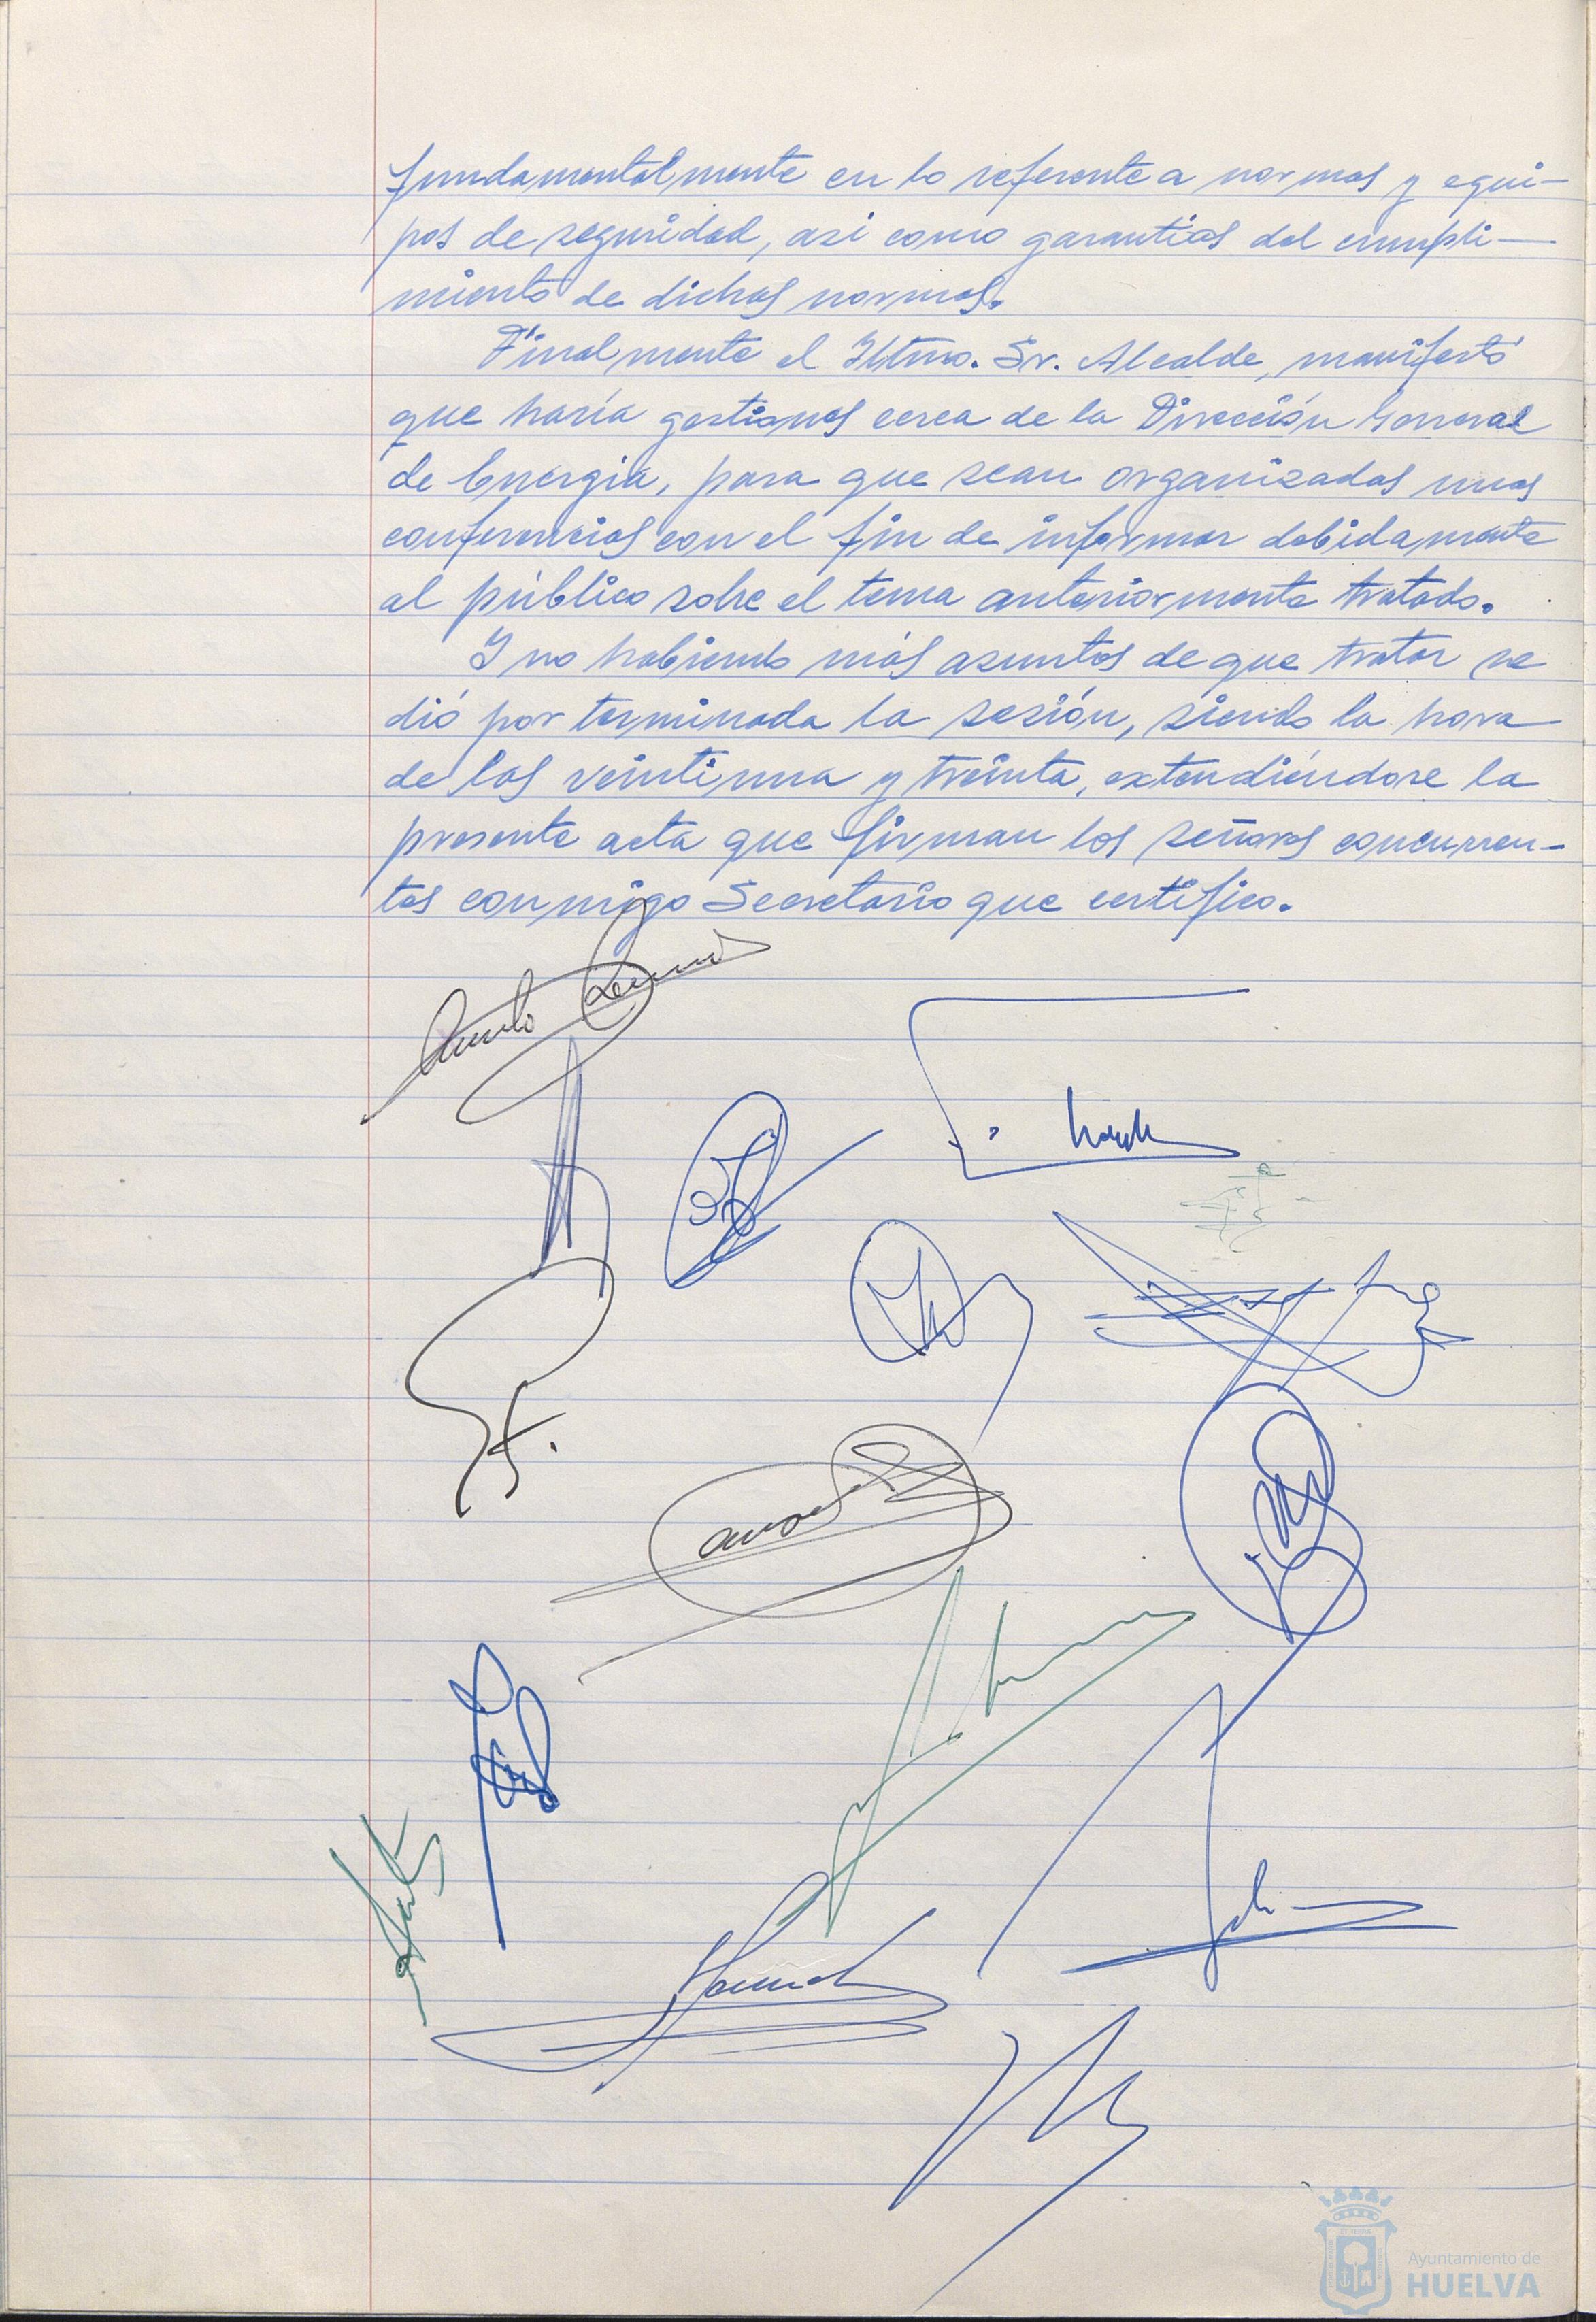 fundamentalmente en lo referente a normas y equi-
pos de seguridad, asi como garantias del cumpli-
miento de dichas normas.
Finalmente el Iltmo. Sr. Alcalde, manifestó
que haría gestiones cerca de la Dirección General
de Energia, para que sean organizadas unas
conferencias con el fin de informar debidamente
al público sobre el tema anteriormente tratado.
Y no habiendo más asuntos de que tratar se
dió por terminada la sesión, siendo la hora
de las veintiuna y treinta, extendiéndose la
presente acta que firman los señores concurren-
tes conmigo Secretario que certifico.
Ayuntamiento de
HUELVA